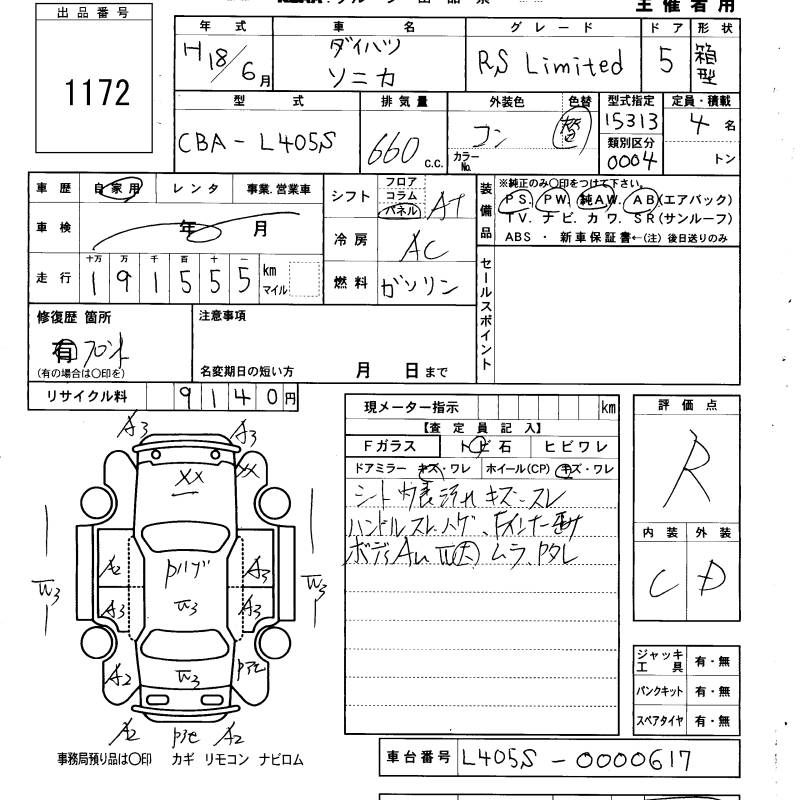 出品番号
1172
主催者用
年式
H18/6月
車名
ダイハツ
ソニカ
グレード
RS Limited
ドア
5
形状
箱型
型式
CBA-L405S
排気量
660 c.c.
外装色
コン
色替
替
カラーNo.
型式指定
15313
類別区分
0004
定員・積載
4名
トン
車歴 自家用 レンタ 事業.営業車
車検 年 月
走行
十万 万 千 百 十 一
191555 km
マイル
シフト
フロア
コラム
パネル
AT
冷房 AC
燃料 ガソリン
装備品
※純正のみ○印をつけて下さい。
PS. PW. 純AW. AB(エアバック)
TV. ナビ. カワ. SR(サンルーフ)
ABS ・ 新車保証書←(注) 後日送りのみ
セールスポイント
修復歴 箇所
有 フロント
(有の場合は○印を)
注意事項
名変期日の短い方 月 日まで
リサイクル料 9140円
現メーター指示 km
【査定員記入】
Fガラス トビ石 ヒビワレ
ドアミラー キズ・ワレ ホイール(CP) キズ・ワレ
シート 内装 汚れ キズ・スレ
ハンドルスレ、ハゲ、
ボディAU ムラ、
評価点
R
内装 外装
C D
ジャッキ工具 有・無
パンクキット 有・無
スペアタイヤ 有・無
A3 A3
XX XX
A2 Pハゲ A3
W3 W3 W3
A3 A3
A2 W3
A2 A2
事務局預り品は○印 カギ リモコン ナビロム
車台番号 L405S-0000617